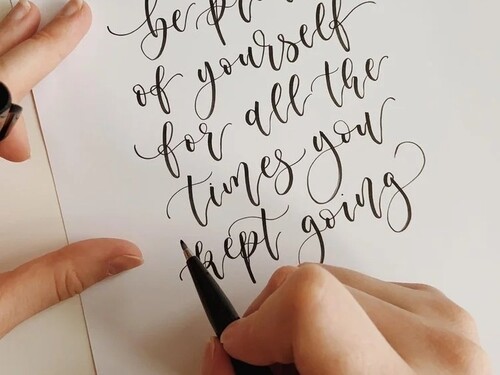 be
of yourself
for all the
times you
kept going